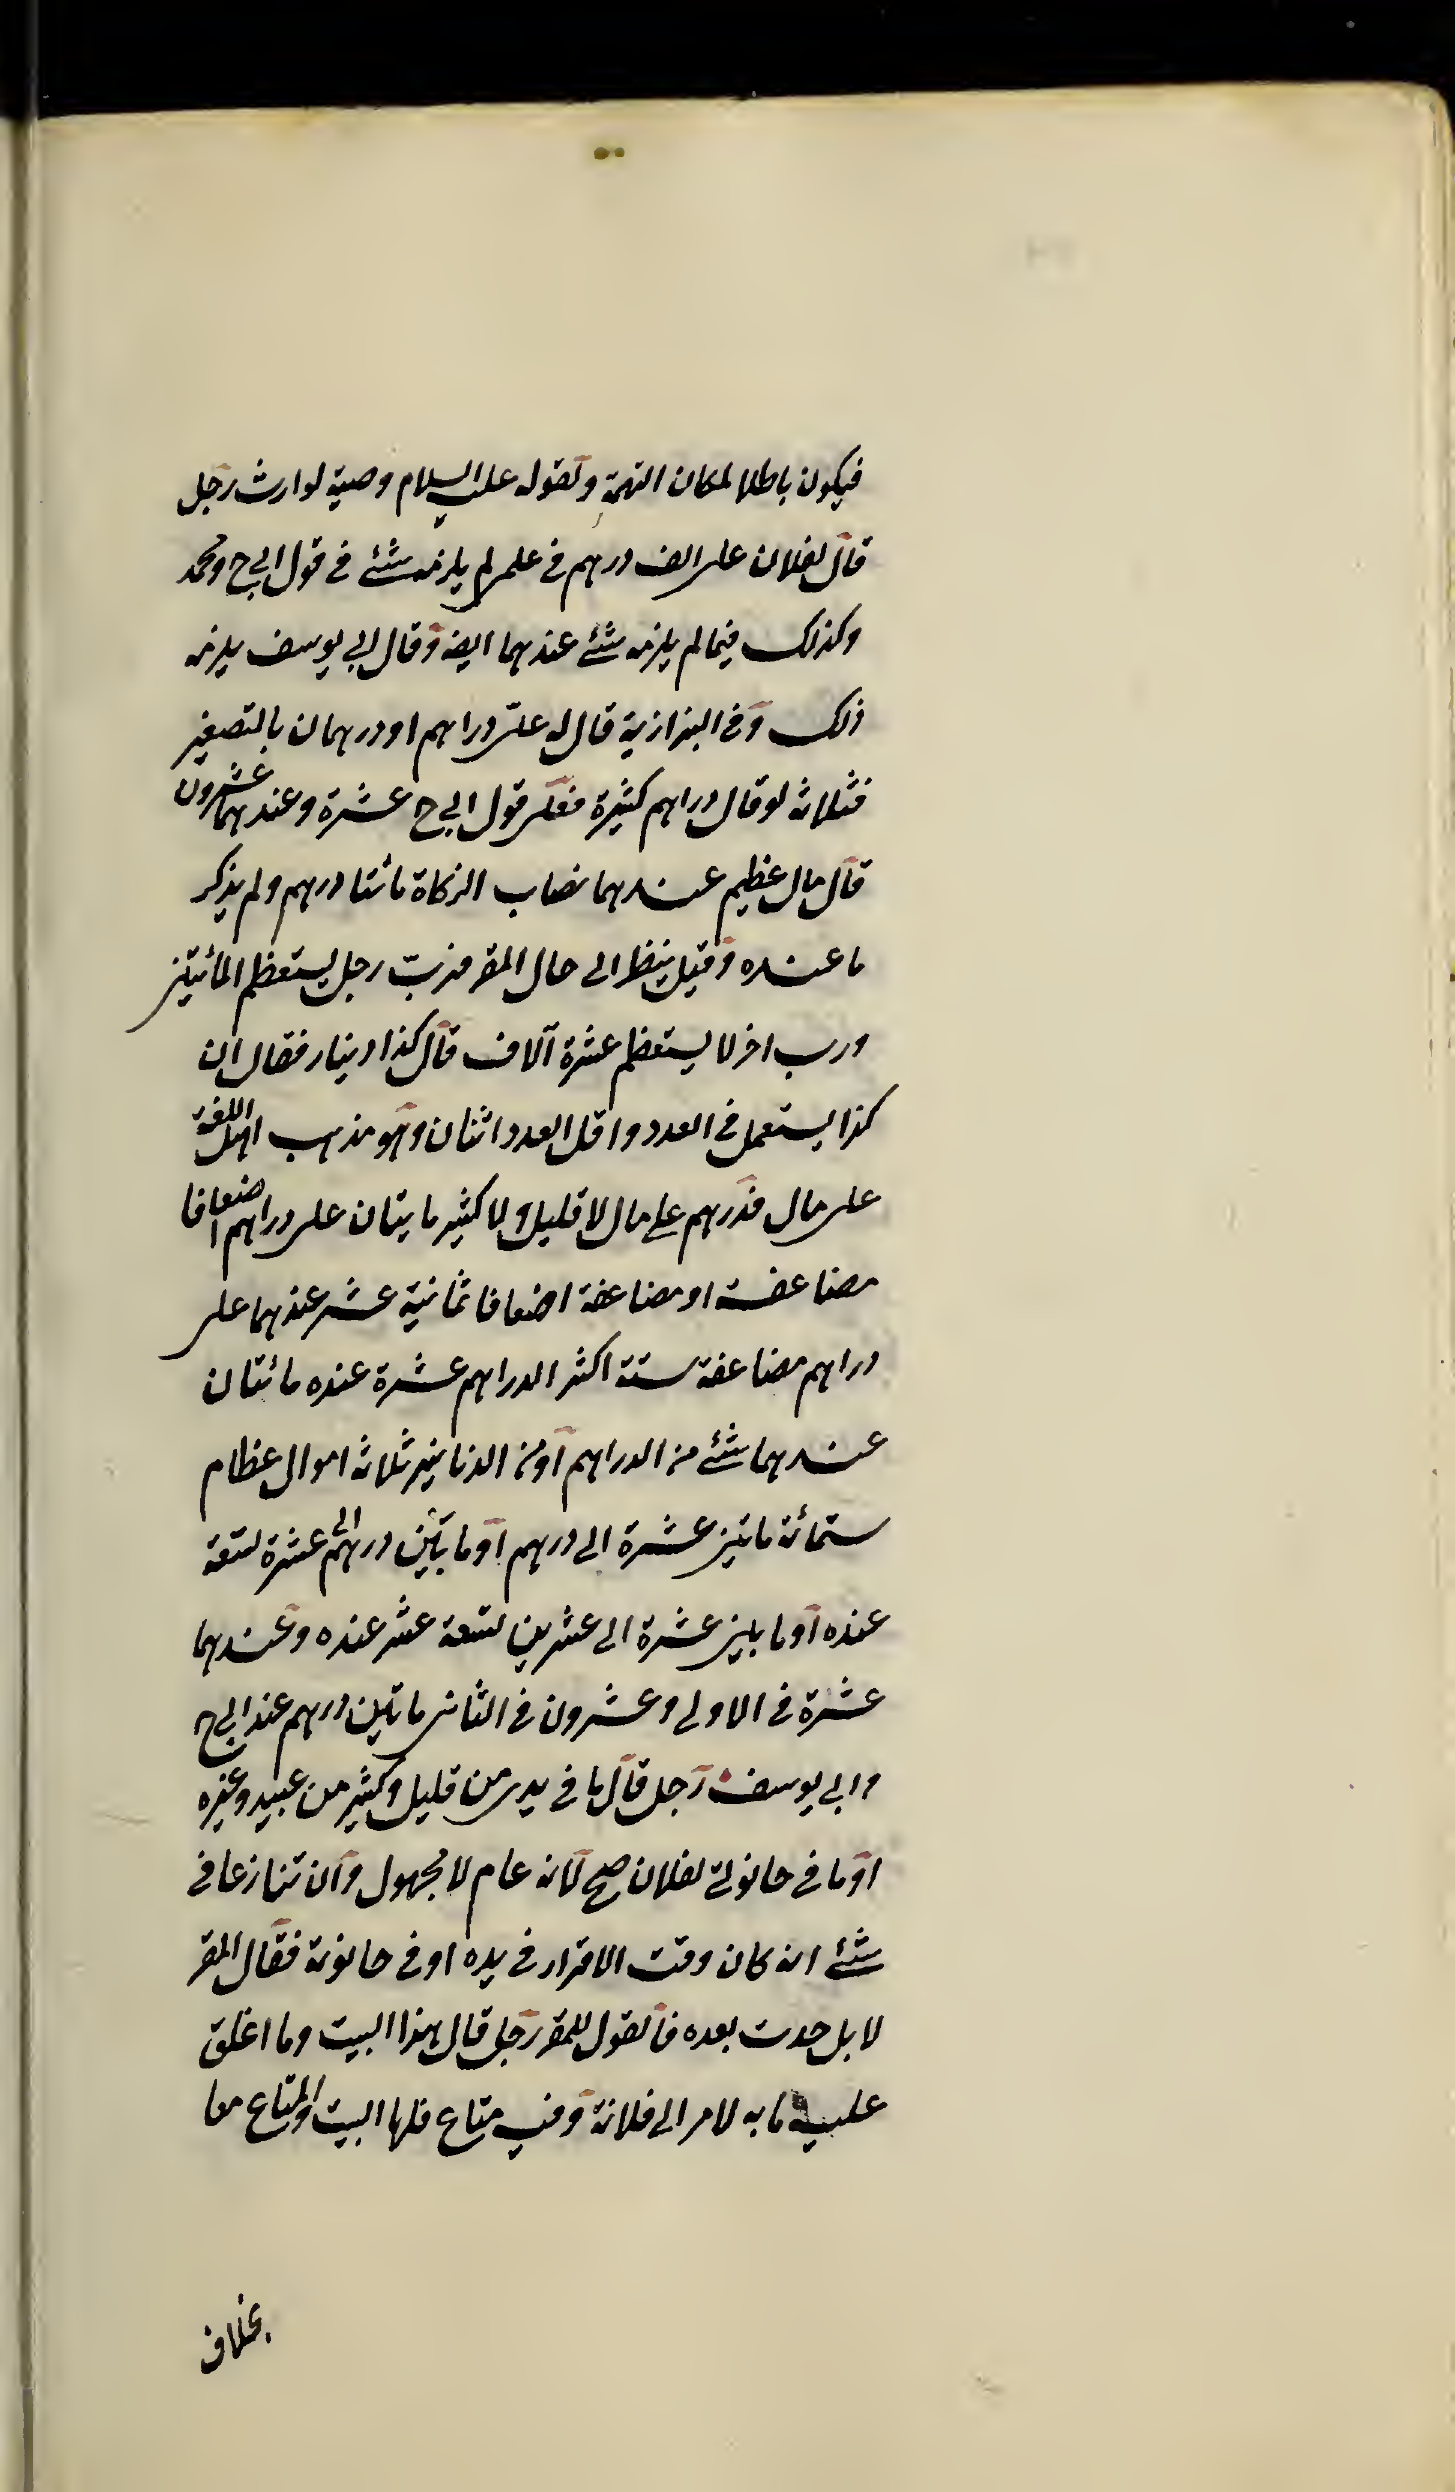 فيكون باطلا لمكان التهمة ولقوله عليه السلام وصية لوارث رجل
قال لفلان على الف درهم في علمي لم يلزمه شئ في قول ابي ح ومحمد
وكذلك فيما لم يلزمه شئ عندهما ايضا وقال ابي يوسف يلزمه
ذلك وفي البزازية قال له علىّ دراهم او درهمان بالتصغير
فثلاثة لو قال دراهم كثيرة فعلى قول ابي ح عشرة وعندهما عشرون
قال مال عظيم عندهما نصاب الزكاة مائتا درهم ولم يذكر
ما عنده وقيل ينظر الى حال المقر فربّ رجل يستعظم المأتين
ورب اخر لا يستعظم عشرة آلاف قال كذا دينار فقال ان
كذا يستعمل في العدد واقل العدد اثنان وهو مذهب اهل اللغة
على مال فدرهم على مال لا قليل ولا كثير مايتان على دراهم اضعافا
مضاعفة او مضاعفة اضعافا ثمانية عشر عندهما على
دراهم مضاعفة ستة اكثر الدراهم عشرة عنده مائتان
عندهما شئ من الدراهم او من الدنانير ثلاثة اموال عظام
ستمائة ما بين عشرة الى درهم او ما بين درهم الى عشرة تسعة
عنده او ما بين عشرة الى عشرين تسعة عشر عنده وعندهما
عشرة في الاولى وعشرون في الثاني مايتين درهم عند ابي ح
وابي يوسف رجل قال ما في يدي من قليل وكثير من عبيد وغيره
او ما في حانوتي لفلان صح لانه عام لا مجهول وان تنازعا في
شئ انه كان وقت الاقرار في يده او في حانوته فقال المقر
لا بل حدث بعده فالقول للمقر رجل قال هذا البيت وما اغلق
عليه بابه لامرأتي فلانة وفيه متاع فلها البيت والمتاع معا
بخلاف